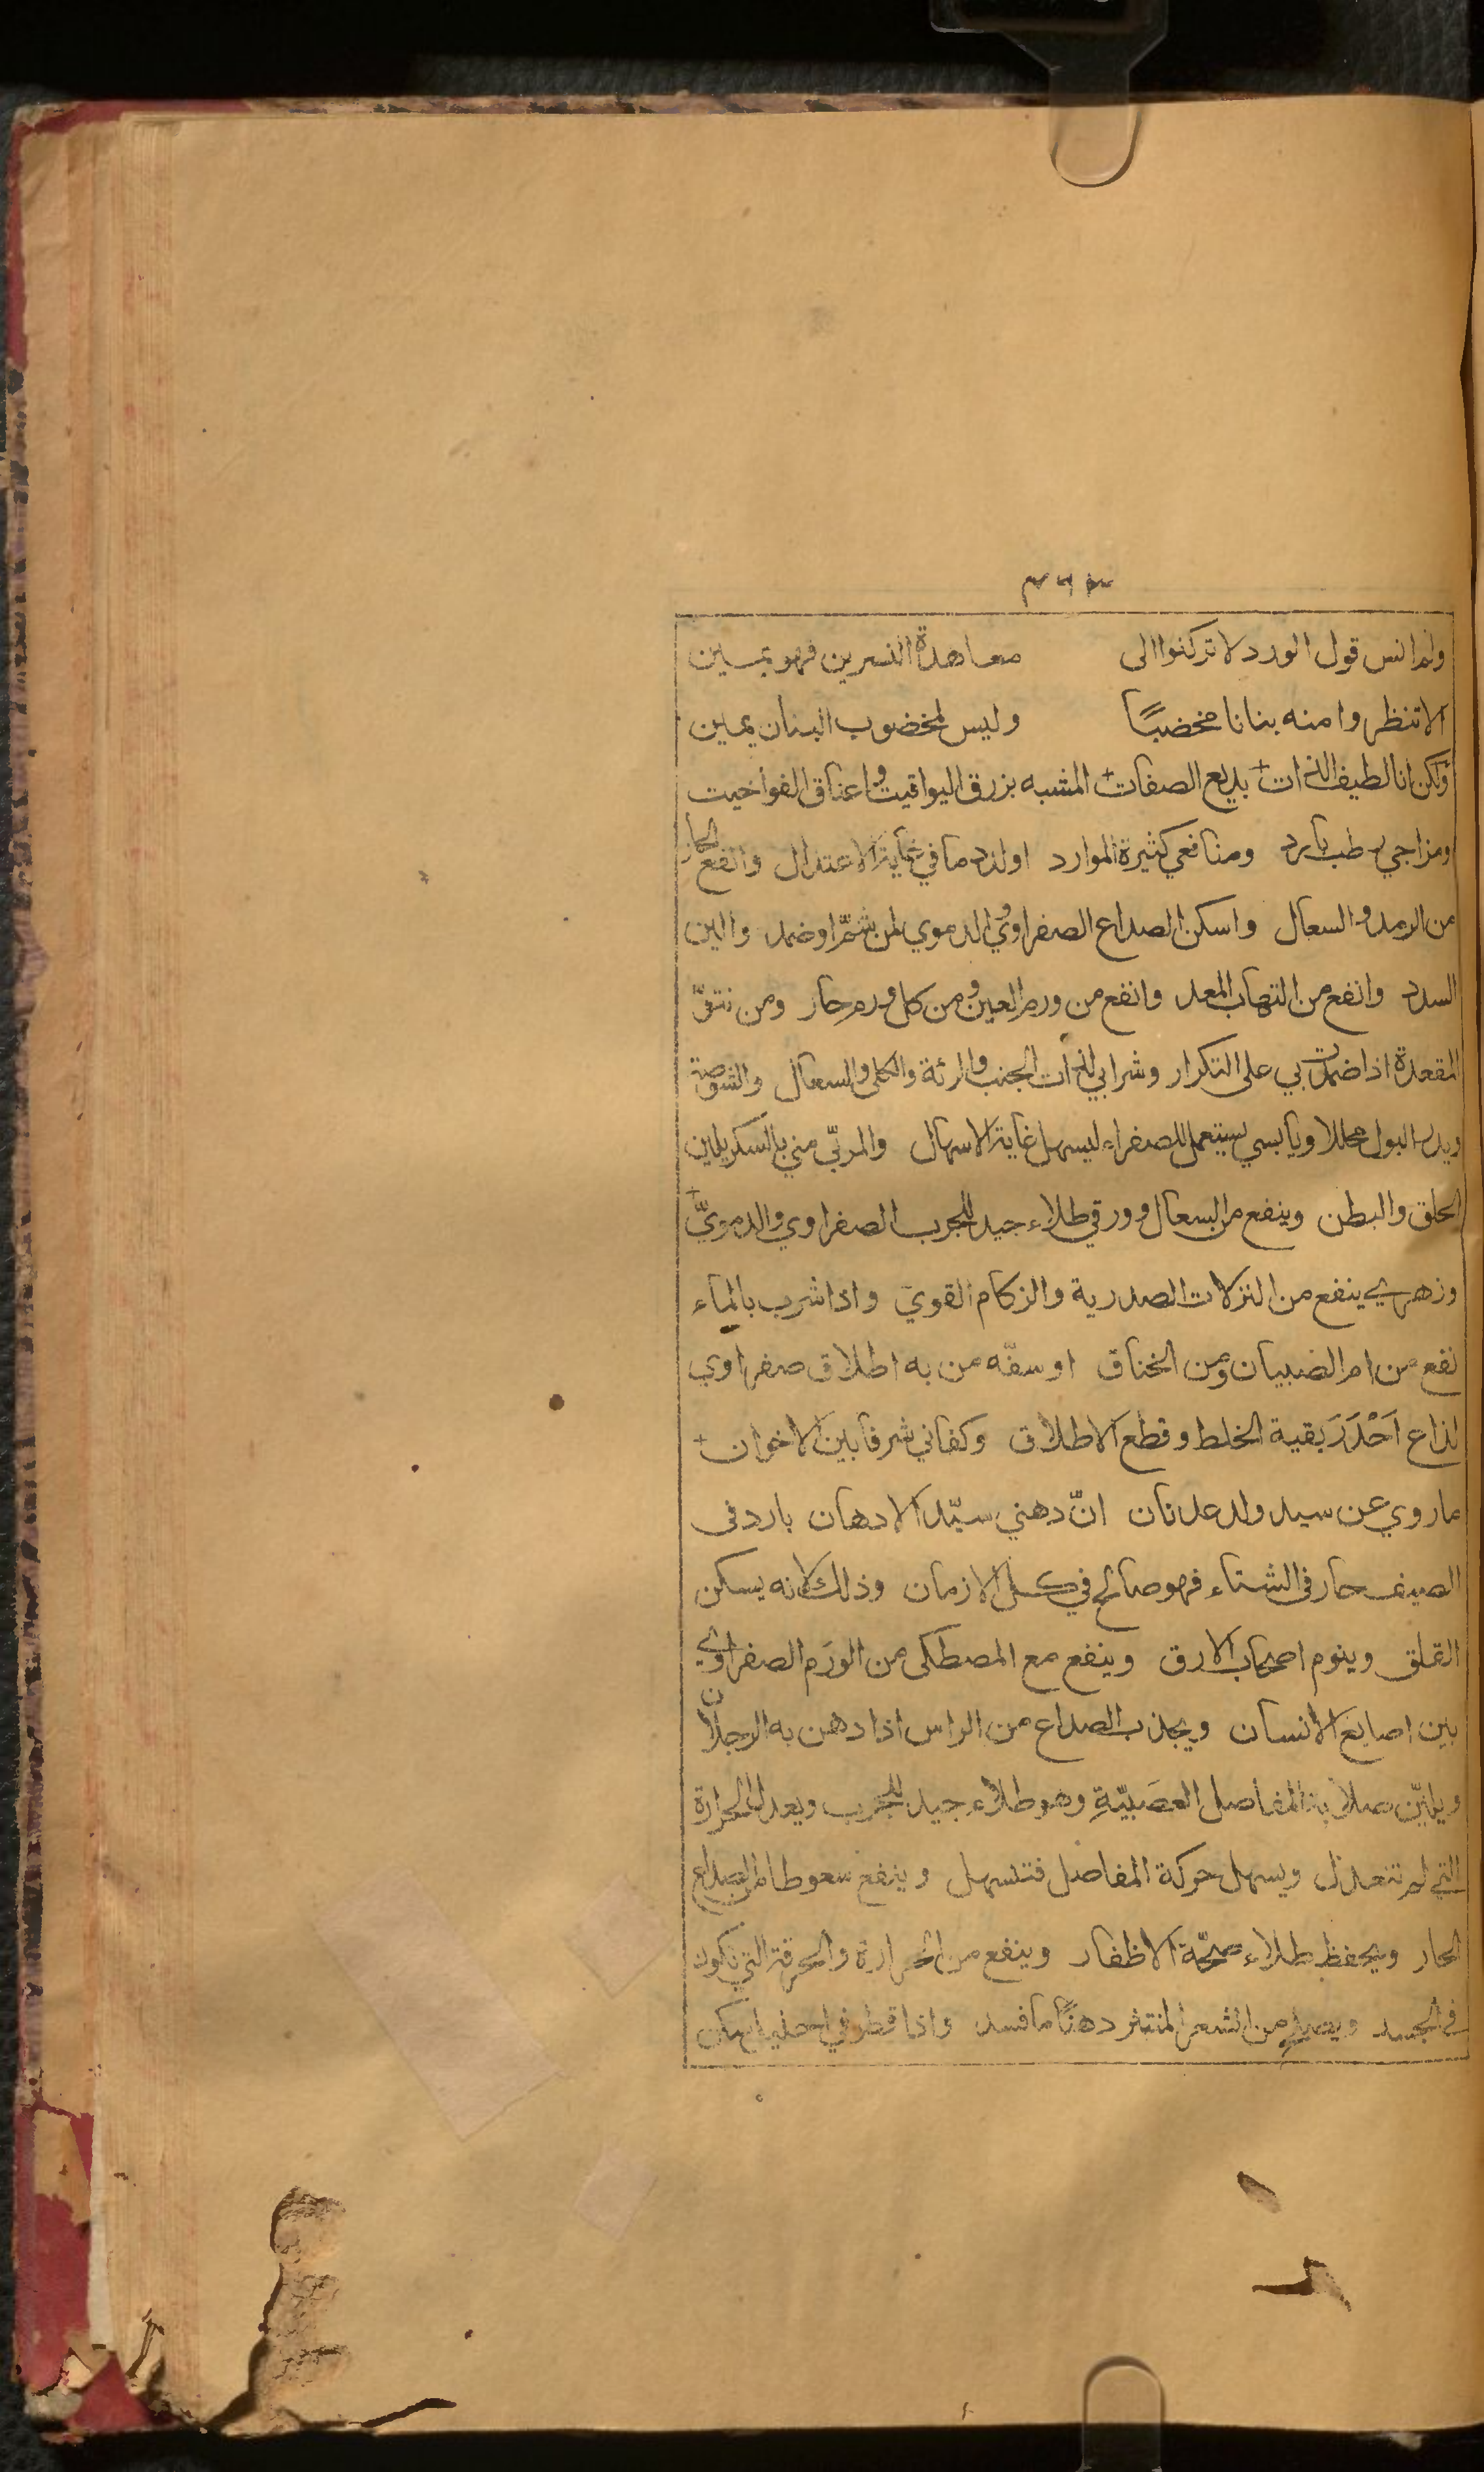 ٣٦٣
ولم انس قول الورد لا تركنوا الى معاهدة النسرين فهو يمين
الا تنظروا منه بنانا مخضبًا وليس لمخضوب البنان يمين
ولكن انا لطيف الذات بديع الصفات المشبه بزرق اليواقيت واعناق الفواخيت
ومزاجي رطب بارد ومنافعي كثيرة الموارد اولد دما في غاية الاعتدال وانفع الحار
من الرمد والسعال واسكن الصداع الصفراوي والدموي لمن شمّ او ضمد والين
السدد وانفع من التهاب المعد وانفع من ورم العين ومن كل ورم حار ومن نتوّ
المقعدة اذا ضمدت بي على التكرار وشرابي لذات الجنب والرئة والكلى والسعال والشوصة
ويدر البول محللا ويابسي يستعمل للصفراء ليسهل غاية الاسهال والمربّى مني بالسكر يلين
الحلق والبطن وينفع من السعال وورقي طلاء جيد للجرب الصفراوي والدمويّ
وزهري ينفع من النزلات الصدرية والزكام القوي واذا شرب بالماء
نفع من ام الصبيان ومن الخناق او سفّه من به اطلاق صفراوي
لذاع اَحْدَرَ بقية الخلط وقطع الاطلاق وكفاني شرفا بين الاخوان
ما روي عن سيد ولد عدنان انّ دهني سيّد الادهان بارد فى
الصيف حار فى الشتاء فهو صالح في كل الازمان وذلك لانه يسكن
القلق وينوم اصحاب الارق وينفع مع المصطكى من الورَم الصفراوي
بين اصابع الانسان ويجذب الصداع من الراس اذا دهن به الرجلان
ويليّن صلابة المفاصل العصَبيّةِ وهو طلاء جيد للجرب ويعدل الحرارة
التي لم تتعدل ويسهل حركة المفاصل فتسهل وينفع سعوطا من الصداع
الحار ويحفظ طلاء صحّة الاظفار وينفع من الحرارة والحرقة التي تكون
في الجسد ويصلح من الشعر المنتثر دهنًا ما فسد واذا قطر في احليل اسكن